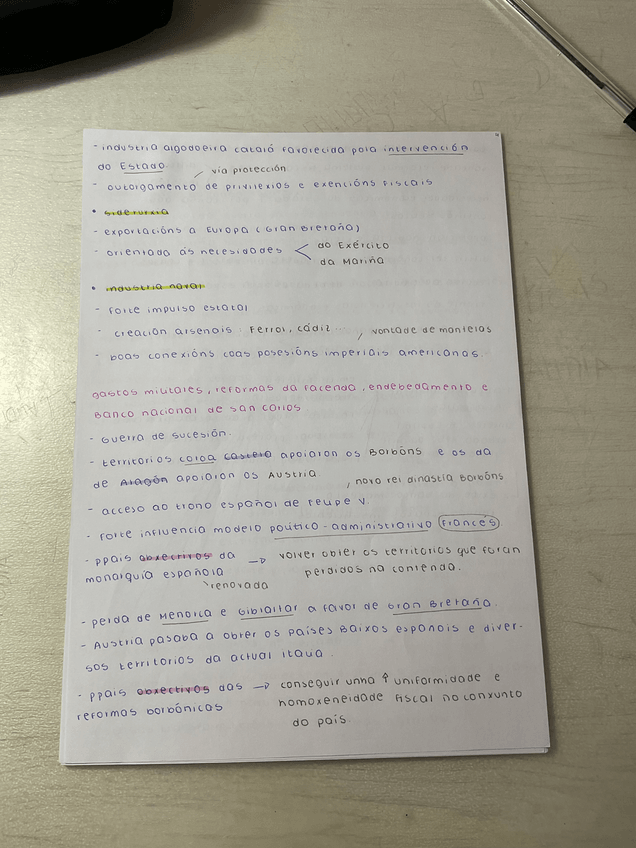 - industria algodoeira catalá favorecida pola intervención
do Estado
vía protección
- outorgamento de privilexios e exencións fiscais
• siderurxia
- exportacións a Europa (Gran Bretaña)
- orientada ás necesidades < do Exército
da Mariña
• industria naval
- forte impulso estatal
- creación arsenais: Ferrol, Cádiz...
, vontade de mantelas
- boas conexións coas posesións imperiais americanas.
gastos militares, reformas da facenda, endebedamento e
Banco nacional de san carlos
- Guerra de sucesión.
- territorios coroa castela apoiaron os Borbóns e os da
de Aragón apoiaron os Austria
, novo rei dinastía Borbóns
- acceso ao trono español de Felipe V.
- forte influencia modelo político-administrativo francés
- ppais obxectivos da → volver obter os territorios que foran
monarquía española perdidos na contenda.
renovada
- perda de Menorca e Gibraltar a favor de Gran Bretaña.
- Austria pasaba a obter os países Baixos españois e diver-
sos territorios da actual Italia.
- ppais obxectivos das → conseguir unha ↑ uniformidade e
reformas borbónicas homoxeneidade fiscal no conxunto
do país.